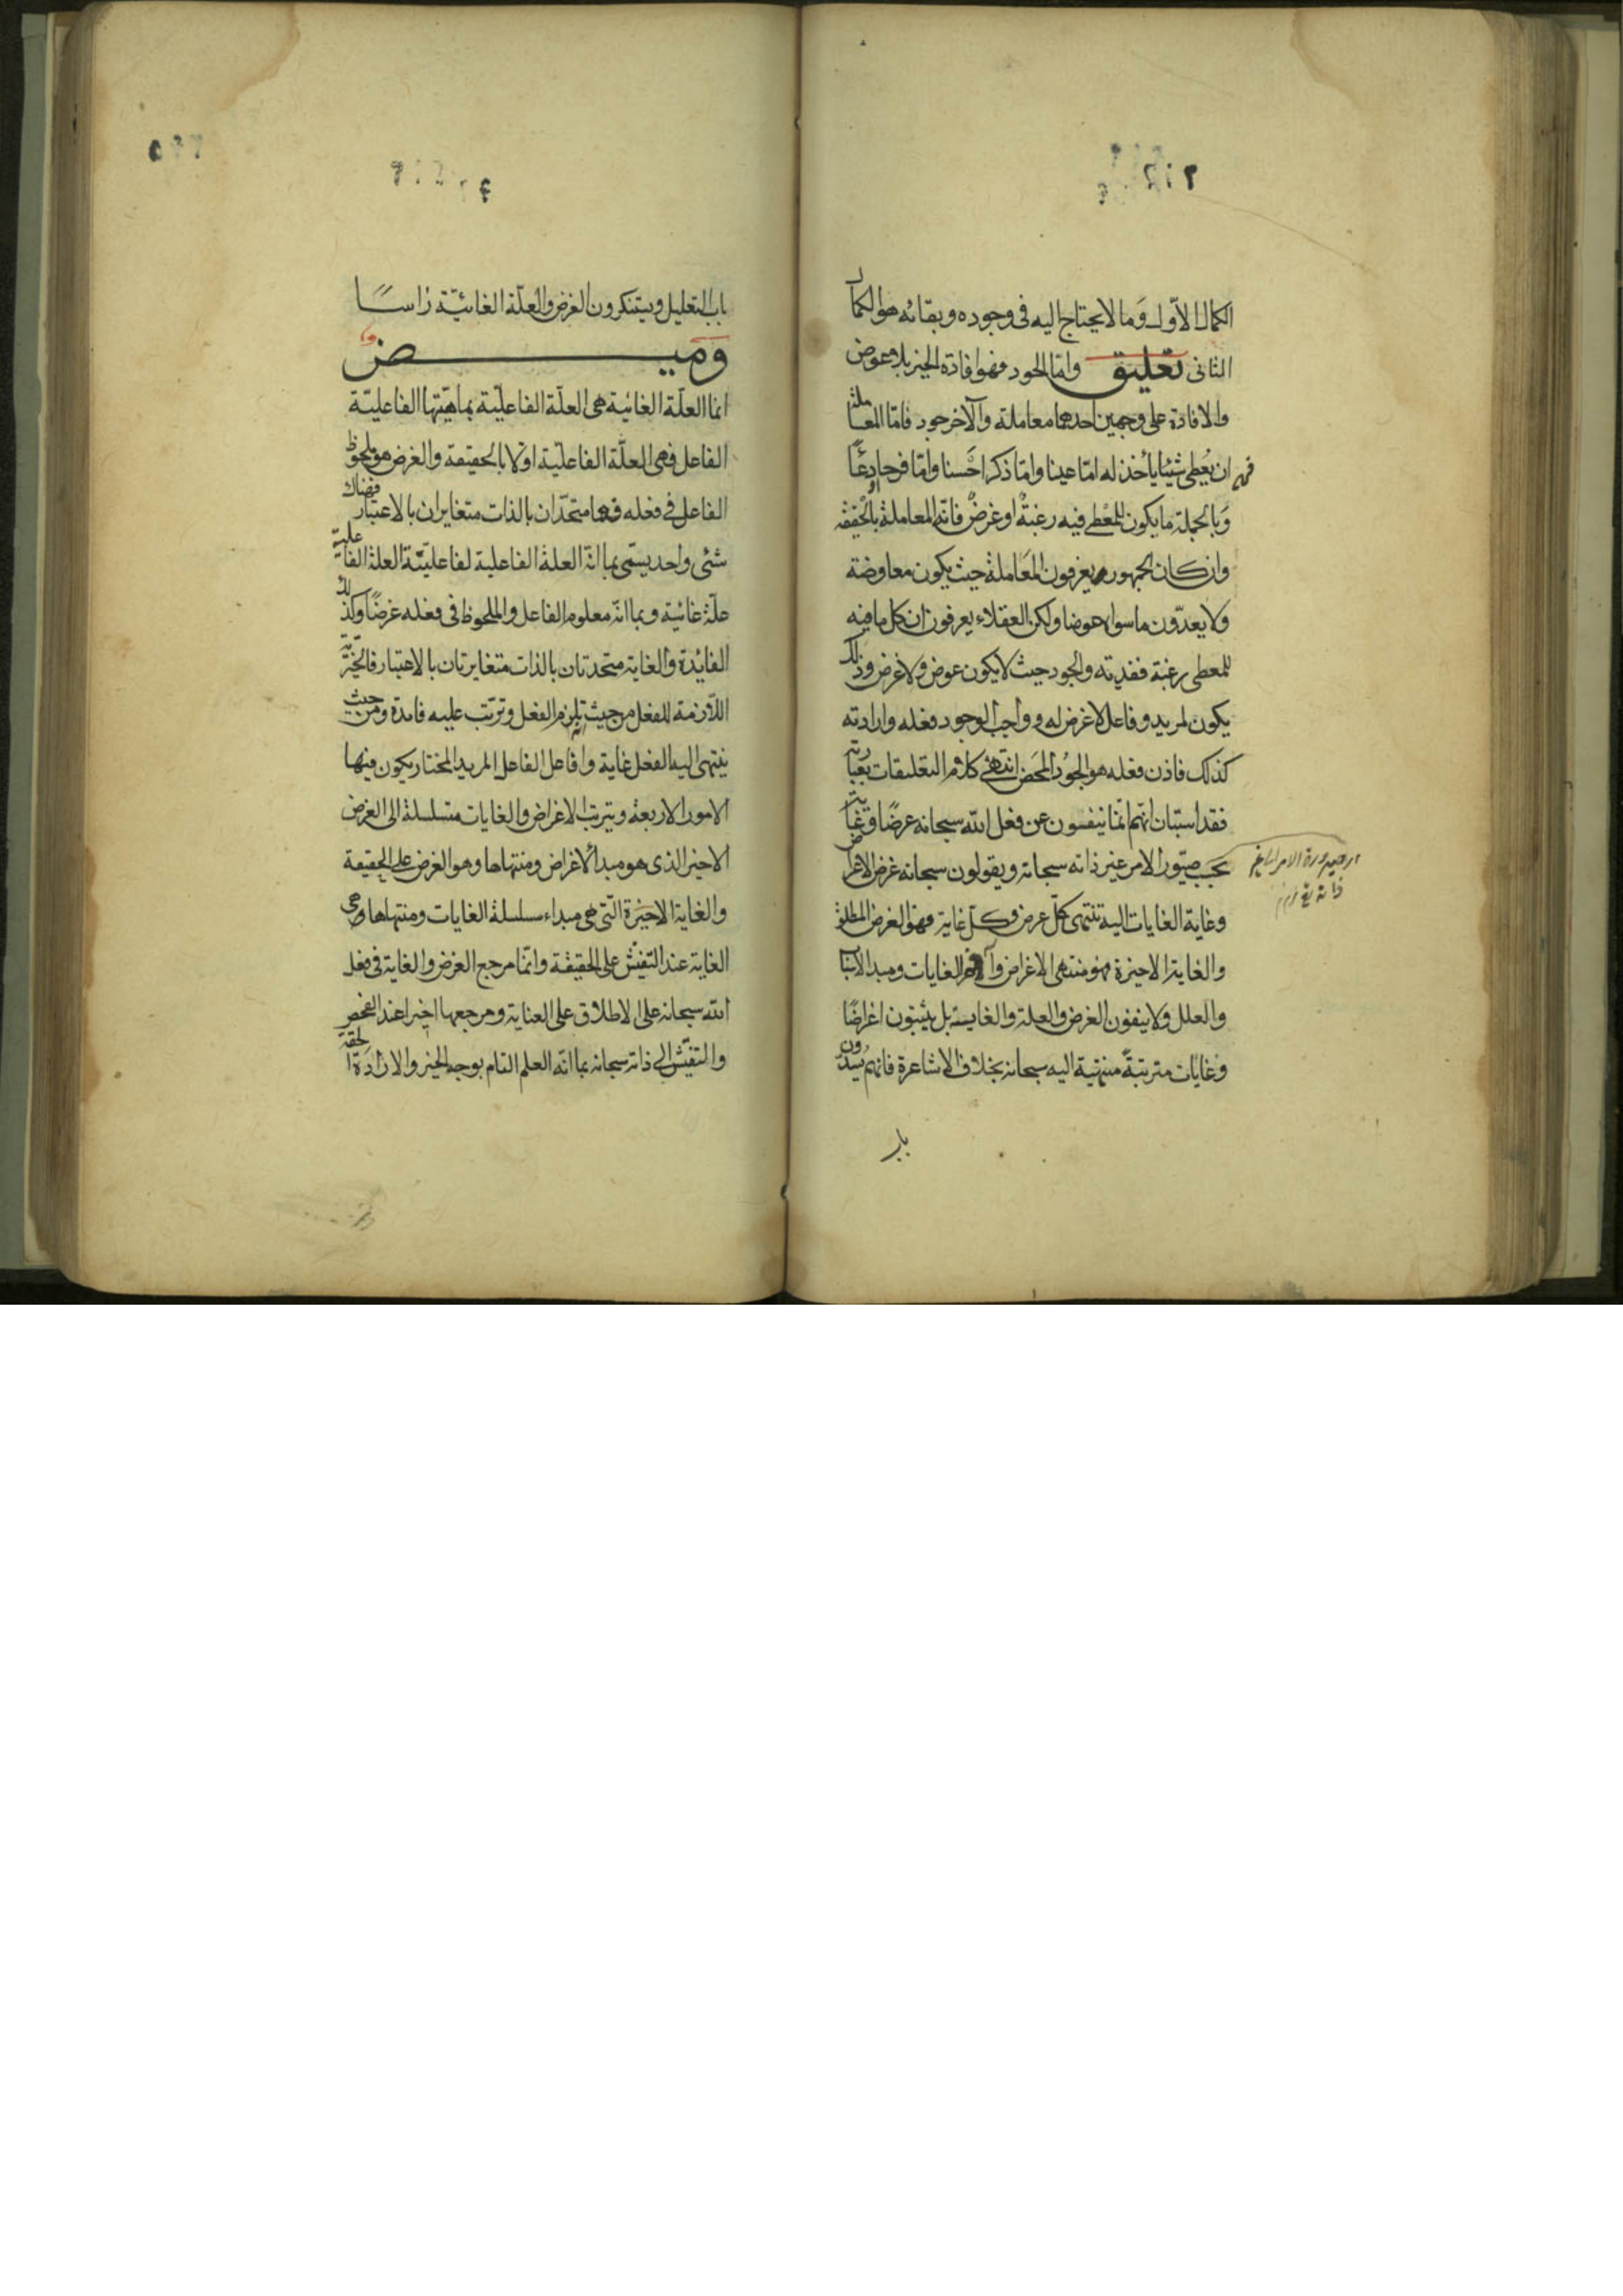 الكمال الاوّل وَما لا يحتاج اليه فى وجوده وبقائه هو الكمال
الثانى تعليق وامّا الجود فهو افادة الخير بلا عوض
والافادة على وجهين احدهما معاملة والآخر جود فامّا المعاملة
فهو ان يُعطى شيئا يأخذ له امّا عينا وامّا ذكرا حَسنا وامّا فرحا
وَبالجملة ما يكون للمُعطى فيه رغبةٌ او غرضٌ فانّه المعاملة بالحقيقة
وان كان الجمهور يعرفون المعَاملة حيث يكون معاوضة
ولا يعدّون ما سواه عوضا ولكن العقلاء يعرفون ان كل ما فيه
للمعطى رغبة ففديته والجود حيث لا يكون عوض ولا غرض وذلك
يكون لمريد وفاعل لا غرض له وواجب الوجود فعله وارادته
كذلك فاذن فعله هو الجُود المحَض انتهى كلام التعليقات بعبارته
فقد استبان انهم انّما ينفون عن فعل الله سبحانه غرضًا وغاية
بحَسب صيّور الامر غير ذاته سبحانه ويقولون سبحانه غرض الاغراض
وغاية الغايات اليه تنتهى كلّ غرض وكلّ غاية فهو الغرض المطلق
والغاية الاخيرة فهو منتهى الاغراض وآخر الغايات ومبدا الاسباب
والعلل ولا ينفون الغرض والعلة والغاية بل يثبتون اغراضًا
وغايات مترتبةً منتهية اليه سبحانه بخلاف الاشاعرة فانهم يسدّون
باب
اى صيرورة الامر
باب التعليل ويستنكرون الغرض والعلّة الغائيّة راسًا
وميض
انما العلّة الغائية هى العلّة الفاعليّة بماهيّتها الفاعليّة
الفاعل فهى العلّة الفاعلية اولا بالحقيقة والغرض هو ملحوظ
الفاعل فى فعله فهما متحّدان بالذات متغايران بالاعتبار فهناك
شئى واحد يسمّى بما انّه العلة الفاعلية لفاعليّة العلة الفاعلية
علّة غائية وبما انّه معلوم الفاعل والملحوظ فى فعله غرضًا وكذلك
الفائدة والغاية متحدتان بالذات متغايرتان بالاعتبار فالخيريّة
اللازمة للفعل من حيث تلزم الفعل وترتّب عليه فائدة ومن حيث
ينتهى اليه الفعل غاية وافاعل الفاعل المريد المختار يكون فيها
الامور الاربعة ويترتب الاغراض والغايات متسلسلة الى الغرض
الاخير الذى هو مبدأ الاغراض ومنتهاها وهو الغرض على الحقيقة
والغاية الاخيرَة الّتى هى مبداء سلسلة الغايات ومنتهاها وهى
الغاية عند التّفتيش على الحقيقة وانّما مرجع الغرض والغاية فى فعل
الله سبحانه على الاطلاق على العناية ومرجعها اخيرا عند الفحص
والتفتّيش الى ذاته سبحانه بما انّه العلم التام بوجه الخير والارادة الحقة